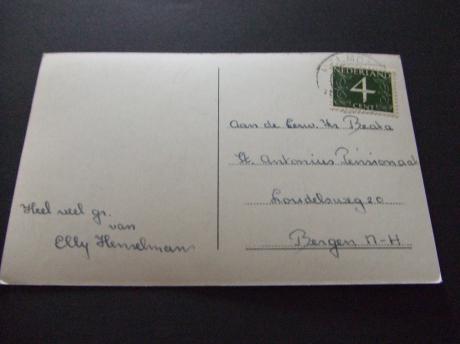 NEDERLAND
4
CENT
Aan de Eerw. Zr Beata
St. Antonius Pensionaat
Loudelsweg 20
Bergen N-H.
Heel veel gr.
van
Elly Henselmans